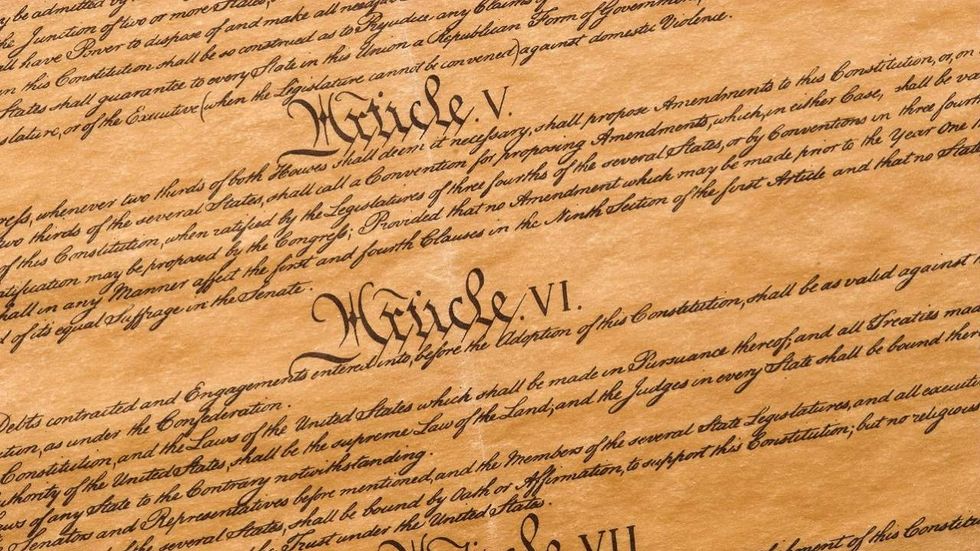 y be admitted by
the Junction of two or more States,
all have Power to dispose of and make all
n this Constitution shall be so construed as to Prejudice any Claims of
States shall guarantee to every State in this Union a Republican Form of Government,
slature, or of the Executive (when the Legislature cannot be convened) against domestic Violence.
Article. V.
reſs, whenever two thirds of both Houses shall deem it neceſsary, shall propose Amendments to this Constitution, or, on
two thirds of the several States, shall call a Convention for proposing Amendments, which, in either Case, shall be va
of this Constitution, when ratified by the Legislatures of three fourths of the several States, or by Conventions in three fourt
atification may be proposed by the Congreſs; Provided that no Amendment which may be made prior to the Year One
hall in any Manner affect the first and fourth Clauses in the Ninth Section of the first Article and that no State
d of its equal Suffrage in the Senate.
Article. VI.
Debts contracted and Engagements entered into, before the Adoption of this Constitution, shall be as valid against
ution, as under the Confederation.
Constitution, and the Laws of the United States which shall be made in Pursuance thereof; and all Treaties mad
uthority of the United States, shall be the supreme Law of the Land; and the Judges in every State shall be bound there
aws of any State to the Contrary notwithstanding.
Senators and Representatives before mentioned, and the Members of the several State Legislatures, and all execut
of the several States, shall be bound by Oath or Affirmation, to support this Constitution; but no religious
Trust under the United States.
Article. VII.
of this Constit